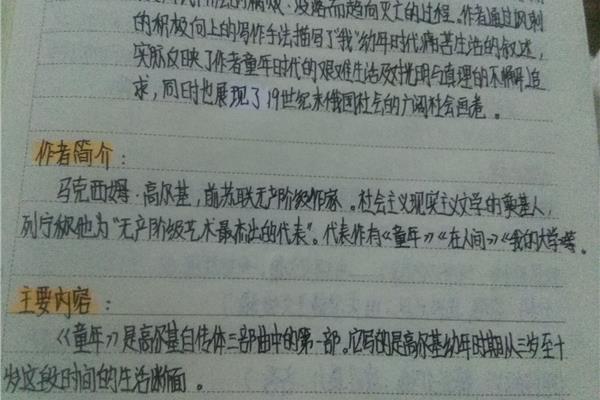 的腐败、没落而趋向灭亡的过程。作者通过讽刺
的积极向上的写作手法描写了"我"幼年时代痛苦生活的叙述,
实际反映了作者童年时代的艰难生活及对光明与真理的不懈追
求,同时也展现了19世纪末俄国社会的广阔社会画卷。
作者简介:
马克西姆·高尔基,前苏联无产阶级作家。社会主义现实主义文学的奠基人,
列宁称他为"无产阶级艺术最杰出的代表"。代表作有《童年》《在人间》《我的大学》等。
主要内容:
《童年》是高尔基自传体三部曲中的第一部。它写的是高尔基幼年时期从三岁至十
岁这段时间的生活断面。